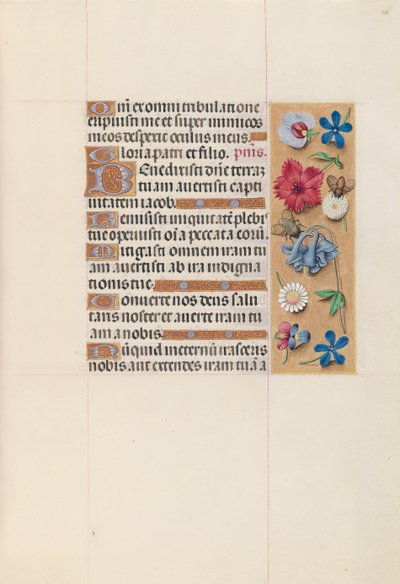 Qm̄ ex omni tribulatione
eripuisti me et super inimicos
meos despexit oculus meus.
Gloria patri et filio. p̄us.
Benedixisti dn̄e terrā
tuam avertisti capti
vitatem iacob.
Remisisti iniquitatē plebis
tue operuisti oīa peccata eorū.
Mitigasti omnem iram tu
am avertisti ab ira indigna
tionis tue.
Converte nos deus salu
taris noster et averte iram tu
am a nobis.
Nūquid ineternū irasceris
nobis aut extendes iram tuā a